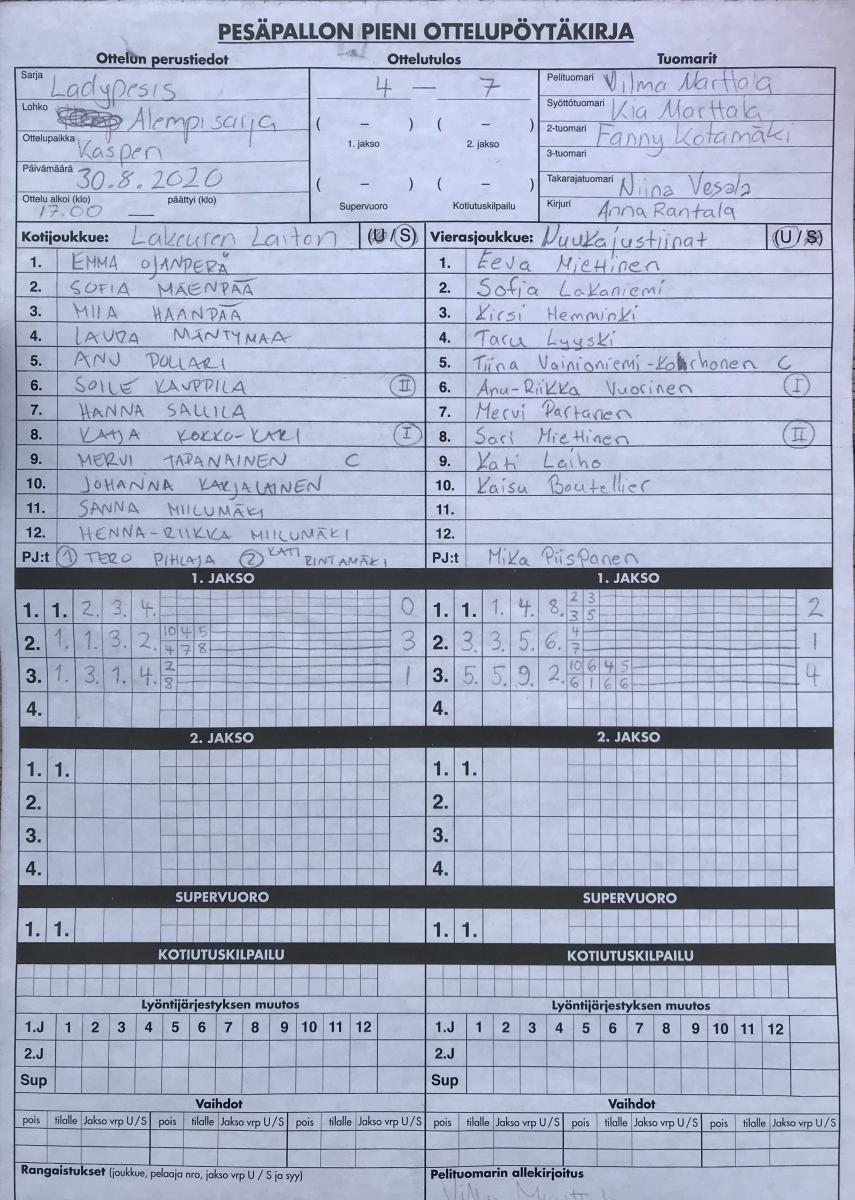 PESÄPALLON PIENI OTTELUPÖYTÄKIRJA
Ottelun perustiedot
Sarja Ladypesis
Lohko Alempi sarja
Ottelupaikka Kaspen
Päivämäärä 30.8.2020
Ottelu alkoi (klo) päättyi (klo)
17.00 —
Ottelutulos
4 — 7
( – ) ( – )
1. jakso 2. jakso
( – ) ( – )
Supervuoro Kotiutuskilpailu
Tuomarit
Pelituomari Vilma Marttala
Syöttötuomari Kia Marttala
2-tuomari Fanny Kotamäki
3-tuomari
Takarajatuomari Niina Vesala
Kirjuri Anna Rantala
Kotijoukkue: Lakeuren Laiton (U/S)
1. EMMA OJANPERÄ
2. SOFIA MÄENPÄÄ
3. MIIA HAANPÄÄ
4. LAURA MÄNTYMAA
5. ANU POLLARI
6. SOILE KAUPPILA II
7. HANNA SALLILA
8. KATJA KOKKO-KARI I
9. MERVI TAPANAINEN C
10. JOHANNA KARJALAINEN
11. SANNA MIILUMÄKI
12. HENNA-RIIKKA MIILUMÄKI
PJ:t 1 TERO PIHLAJA 2 KATI RINTAMÄKI
Vierasjoukkue: Nuukajustiinat (U/S)
1. Eeva Miettinen
2. Sofia Lakaniemi
3. Kirsi Hemminki
4. Taru Lyyski
5. Tiina Vainioniemi- C
6. Anu-Riikka Vuorinen I
7. Mervi Partanen
8. Sari Miettinen II
9. Kati Laiho
10. Kaisu Boutellier
11.
12.
PJ:t Mika Piispanen
1. JAKSO
1. 1. 2. 3. 4. 0
2. 1. 1. 3. 2. 10 4 5 3
4 7 8
3. 1. 3. 1. 4. 2 1
8
4.
1. JAKSO
1. 1. 1. 4. 8. 2 3 2
3 5
2. 3. 3. 5. 6. 4 1
7
3. 5. 5. 9. 2. 10 6 4 5 4
6 1 6 6
4.
2. JAKSO
1. 1.
2.
3.
4.
2. JAKSO
1. 1.
2.
3.
4.
SUPERVUORO
1. 1.
SUPERVUORO
1. 1.
KOTIUTUSKILPAILU
KOTIUTUSKILPAILU
Lyöntijärjestyksen muutos
1.J 1 2 3 4 5 6 7 8 9 10 11 12
2.J
Sup
Lyöntijärjestyksen muutos
1.J 1 2 3 4 5 6 7 8 9 10 11 12
2.J
Sup
Vaihdot
pois tilalle Jakso vrp U/S pois tilalle Jakso vrp U/S pois tilalle Jakso vrp U/S
Vaihdot
pois tilalle Jakso vrp U/S pois tilalle Jakso vrp U/S pois tilalle Jakso vrp U/S
Rangaistukset (joukkue, pelaaja nro, jakso vrp U / S ja syy)
Pelituomarin allekirjoitus